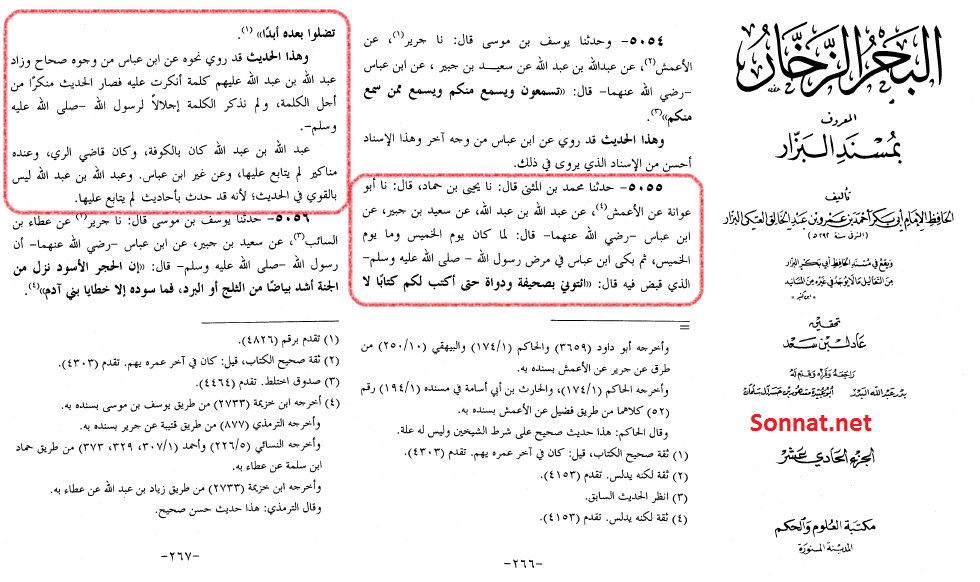 البحر الزخار
المعروف
بمسند البزار
تأليف
الحافظ الإمام أبي بكر أحمد بن عمرو بن عبد الخالق العتكي البزار
(المتوفى سنة ٢٩٢هـ)
ويقع في مسند الحافظ أبي بكر البزار
من التعاليل ما لا يوجد في غيره من المسانيد
«ابن كثير»
تحقيق
عادل بن سعد
راجعه وقرأه وقدم له
بدر عبد الله البدر
أبو عبيدة مشهور بن حسن آل سلمان
Sonnat.net
الجزء الحادي عشر
مكتبة العلوم والحكم
المدينة المنورة
٥٠٥٤- وحدثنا يوسف بن موسى قال: نا جرير(١)، عن
الأعمش(٢)، عن عبدالله بن عبد الله عن سعيد بن جبير ، عن ابن عباس
-رضي الله عنهما- قال: «تسمعون ويسمع منكم ويسمع ممن سمع
منكم»(٣).
وهذا الحديث قد روي عن ابن عباس من وجه آخر وهذا الإسناد
أحسن من الإسناد الذي يروى في ذلك.
٥٠٥٥- حدثنا محمد بن المثنى قال: نا يحيى بن حماد، قال: نا أبو
عوانة عن الأعمش(٤)، عن عبد الله بن عبد الله، عن سعيد بن جبير، عن
ابن عباس -رضي الله عنهما- قال: لما كان يوم الخميس وما يوم
الخميس، ثم بكى ابن عباس في مرض رسول الله - صلى الله عليه وسلم-
الذي قبض فيه قال: «ائتوني بصحيفة ودواة حتى أكتب لكم كتابًا لا
=
وأخرجه أبو داود (٣٦٥٩) والحاكم (١٧٤/١) والبيهقي (٢٥٠/١٠) من
طرق عن جرير عن الأعمش بسنده به.
وأخرجه الحاكم (١٧٤/١)، والحارث بن أبي أسامة في مسنده (١٩٤/١) رقم
(٥٢) كلاهما من طريق فضيل عن الأعمش بسنده به.
وقال الحاكم: هذا حديث صحيح على شرط الشيخين وليس له علة.
(١) ثقة صحيح الكتاب، قيل: كان في آخر عمره يهم. تقدم (٤٣٠٣).
(٢) ثقة لكنه يدلس. تقدم (٤١٥٣).
(٣) انظر الحديث السابق.
(٤) ثقة لكنه يدلس. تقدم (٤١٥٣).
-٢٦٦-
تضلوا بعده أبدًا» (١).
وهذا الحديث قد روي نحوه عن ابن عباس من وجوه صحاح وزاد
عبد الله بن عبد الله عليهم كلمة أنكرت عليه فصار الحديث منكرًا من
أجل الكلمة، ولم نذكر الكلمة إجلالاً لرسول الله -صلى الله عليه
وسلم-.
عبد الله بن عبد الله كان بالكوفة، وكان قاضي الري، وعنده
مناكير لم يتابع عليها، وعن غير ابن عباس. وعبد الله بن عبد الله ليس
بالقوي في الحديث؛ لأنه قد حدث بأحاديث لم يتابع عليها.
٥٠٥٦- حدثنا يوسف بن موسى قال: نا جرير(٢) عن عطاء بن
السائب(٣)، عن سعيد بن جبير، عن ابن عباس -رضي الله عنهما- أن
رسول الله -صلى الله عليه وسلم- قال: «إن الحجر الأسود نزل من
الجنة أشد بياضًا من الثلج أو البرد، فما سوده إلا خطايا بني آدم»(٤).
(١) تقدم برقم (٤٨٢٦).
(٢) ثقة صحيح الكتاب، قيل: كان في آخر عمره يهم. تقدم (٤٣٠٣).
(٣) صدوق اختلط. تقدم (٤٤٦٤).
(٤) أخرجه ابن خزيمة (٢٧٣٣) من طريق يوسف بن موسى بسنده به.
وأخرجه الترمذي (٨٧٧) من طريق قتيبة عن جرير بسنده به.
وأخرجه النسائي (٢٢٦/٥) وأحمد (٣٠٧/١، ٣٢٩، ٣٧٣) من طريق حماد
ابن سلمة عن عطاء به.
وأخرجه ابن خزيمة (٢٧٣٣) من طريق زياد بن عبد الله عن عطاء به.
وقال الترمذي: هذا حديث حسن صحيح.
-٢٦٧-